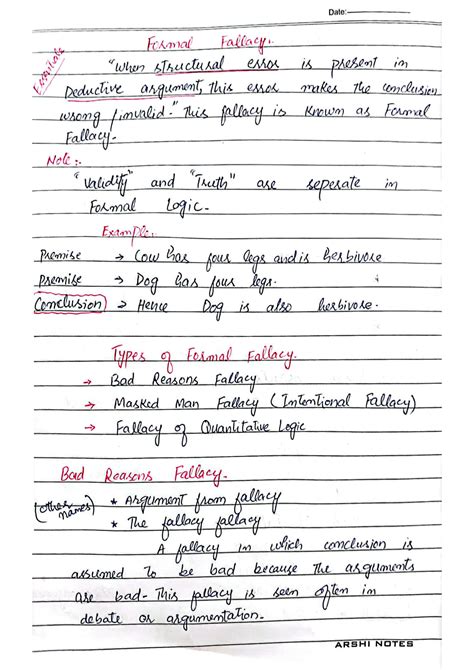 Date:
Formal Fallacy:
"When structural error is present in
Deductive argument, this error makes the conclusion
wrong / invalid." This fallacy is known as Formal
Fallacy.
Note:-
"Validity" and "Truth" are seperate in
Formal Logic.
Example:-
Premise → Cow has four legs and is herbivore
Premise → Dog has four legs.
Conclusion → Hence Dog is also herbivore.
Types of Formal Fallacy.
→ Bad Reasons Fallacy
→ Masked Man Fallacy (Intentional Fallacy)
→ Fallacy of Quantitative Logic
Bad Reasons Fallacy.
(other names) * Argument from fallacy
* The fallacy fallacy
A fallacy in which conclusion is
assumed to be bad because the arguments
are bad. This fallacy is seen often in
debate or argumentation.
ARSHI NOTES